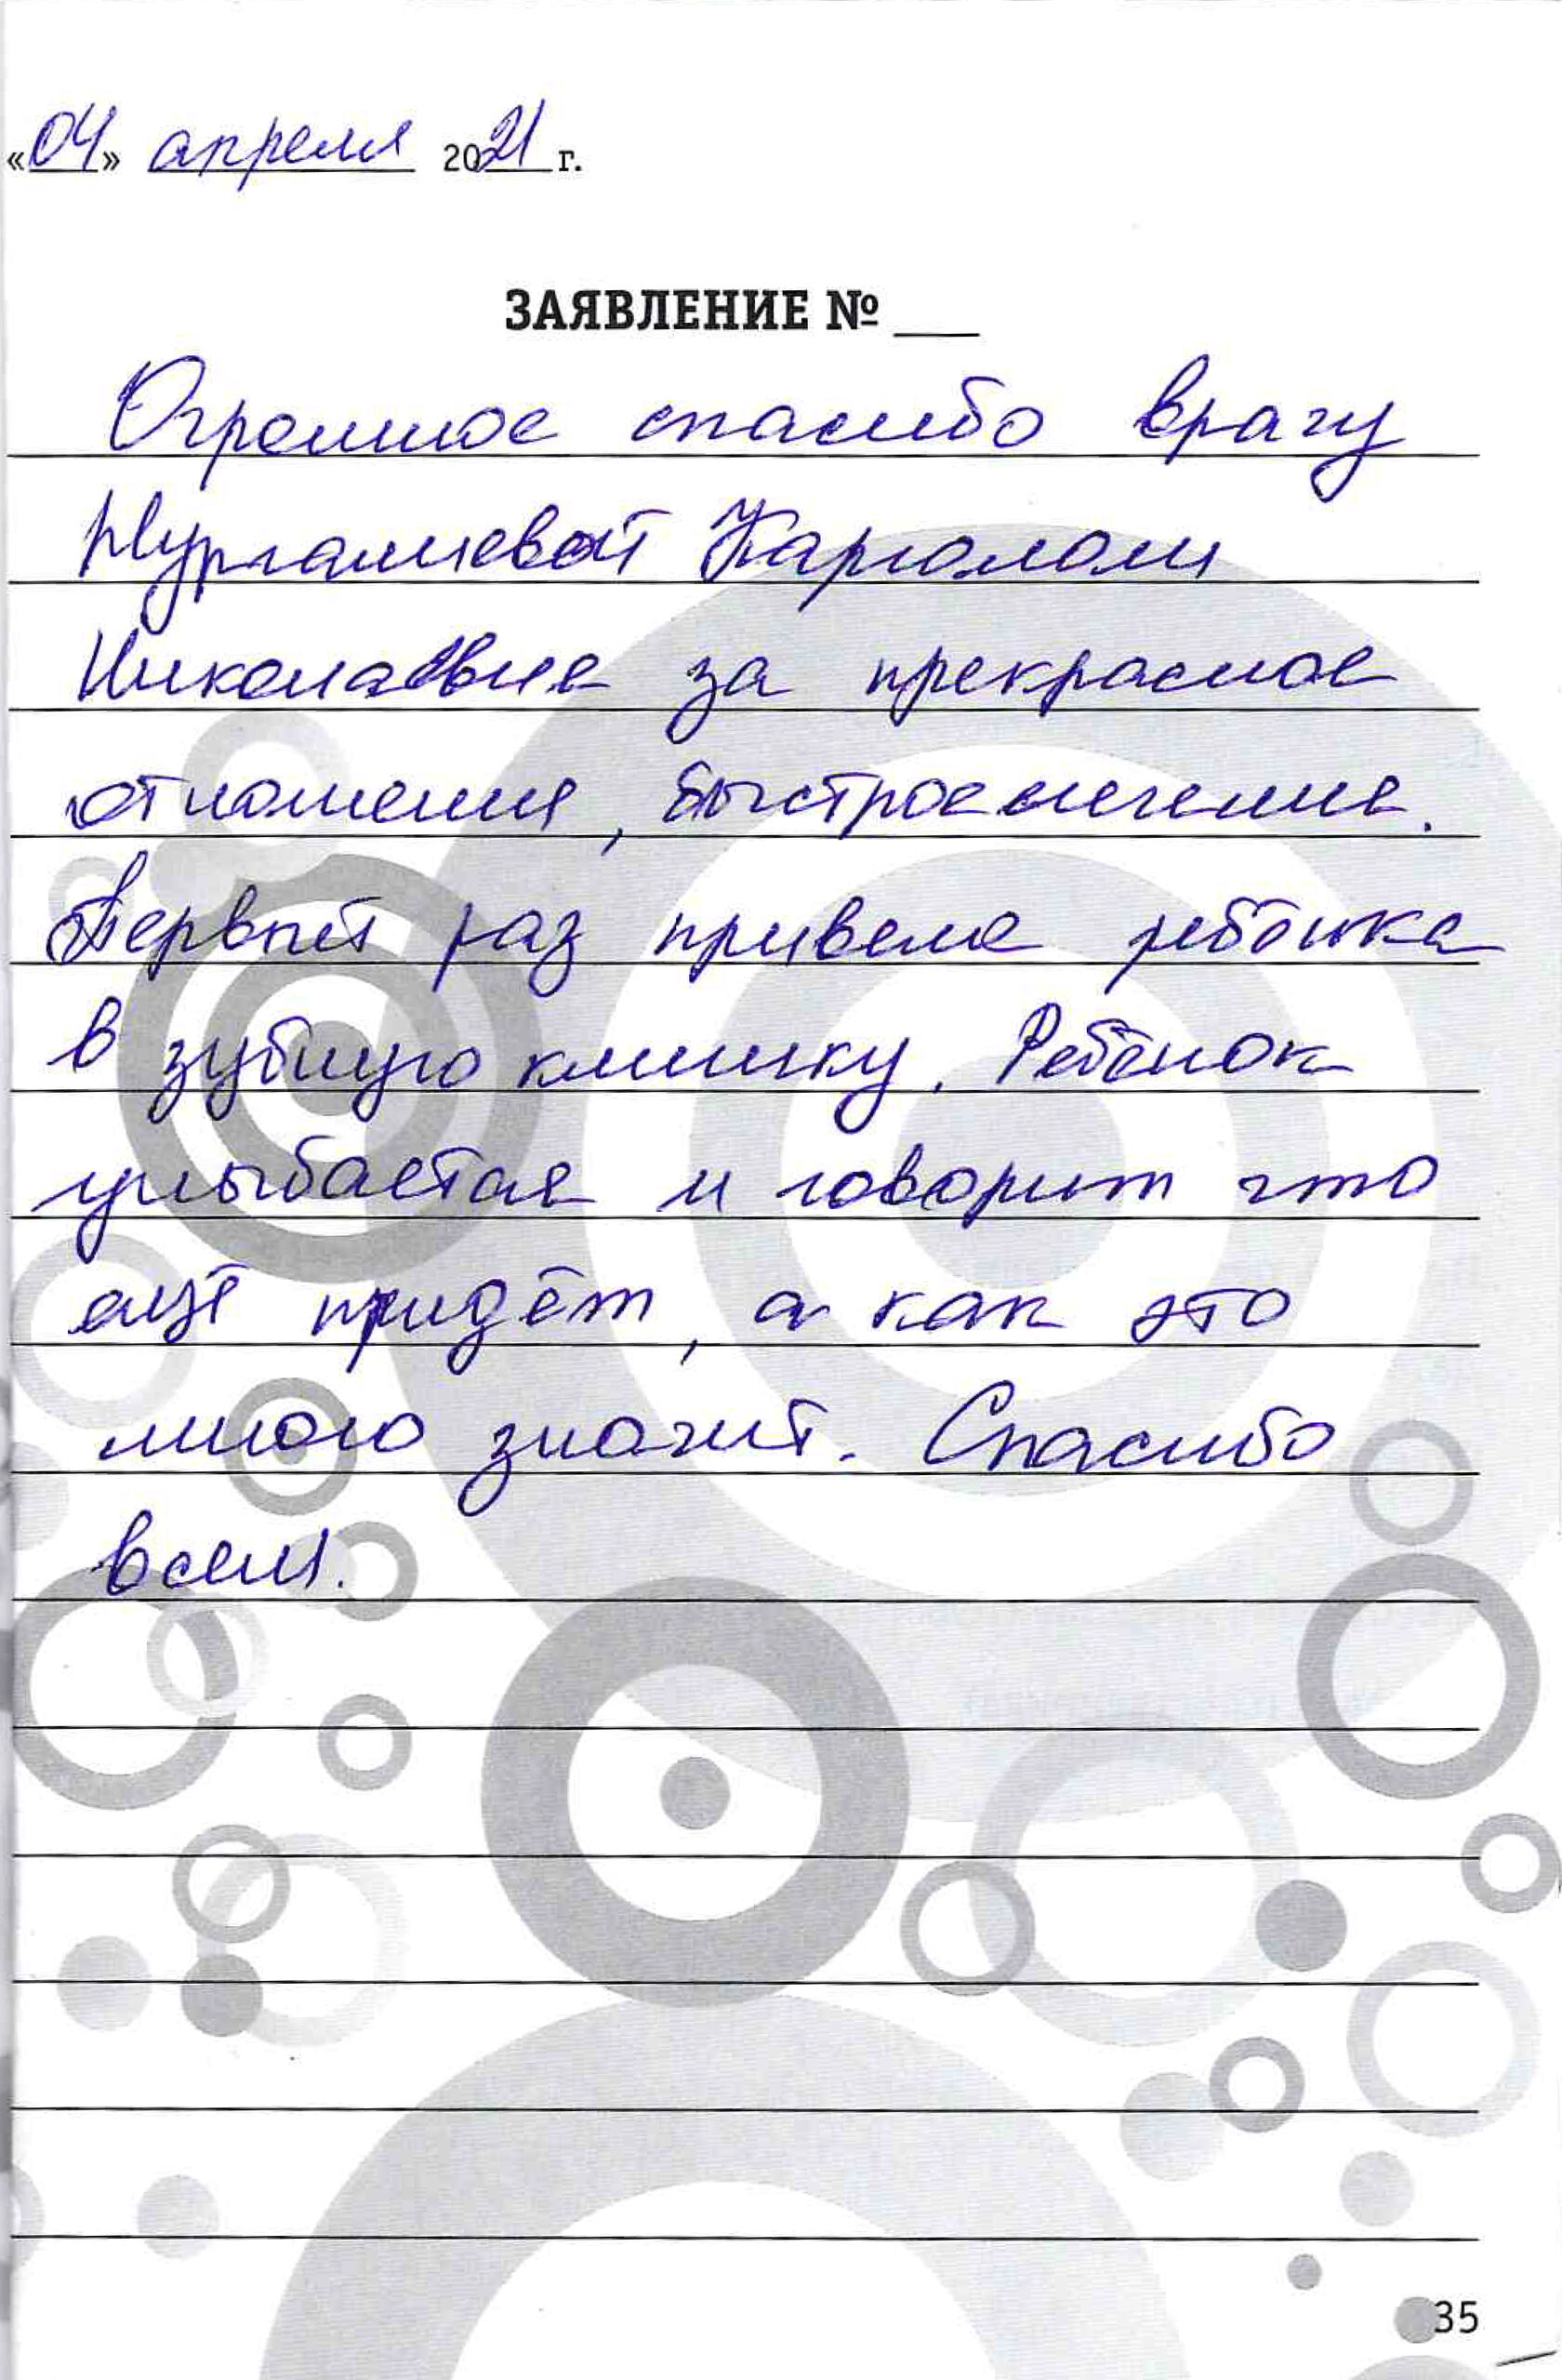 «04» апреля 2021 г.
ЗАЯВЛЕНИЕ № ___
Огромное спасибо врачу
Нургалиевой
Николаевне за прекрасное
отношения, быстрое лечение.
Первый раз привела ребёнка
в зубную клинику. Ребёнок
улыбается и говорит что
ещё придёт, а как это
много значит. Спасибо
всем.
35